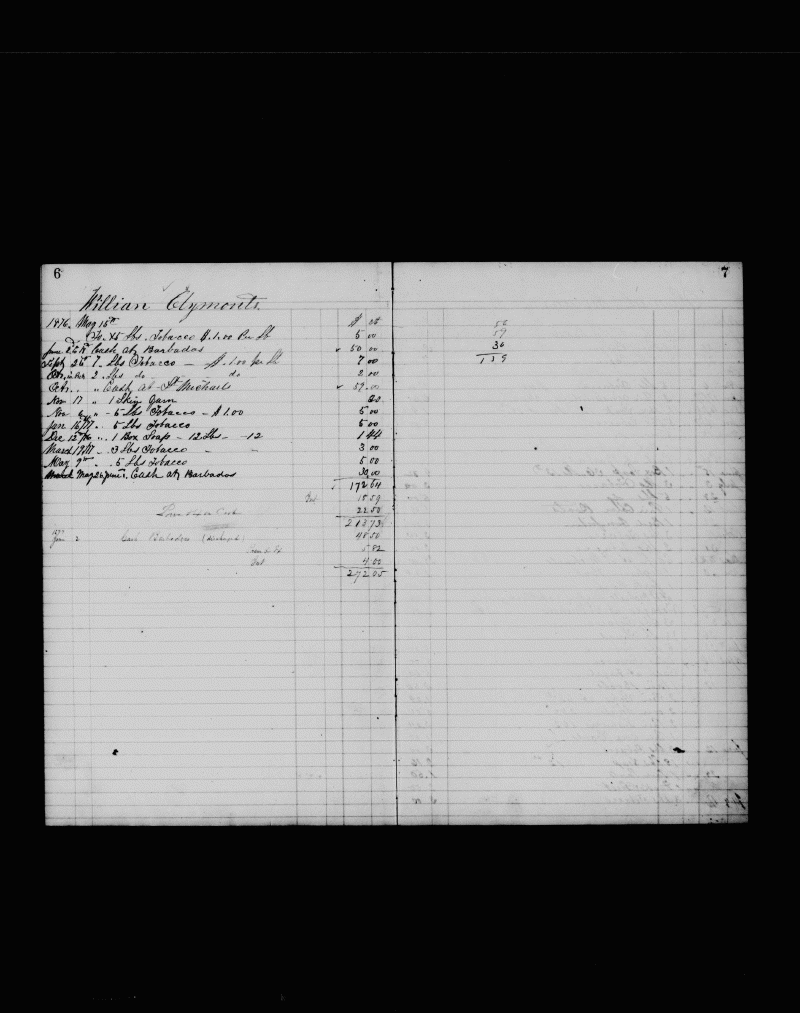 6
William Clymonts
$ ct
1876. May 15th
To. 5 Lbs. Tobacco $1.00 Per Lb 5 00
June Cash at Barbados 50 00
Sept 26th 7. Lbs Tobacco — $1.00 per Lb 7 00
Oct. 2 Lbs do do 2 00
Oct. " Cash at St Michaels 59.00
Nov 17 " 1 Skein Yarn 20
Nov " " - 5 Lbs Tobacco - $1.00 5 00
Jan 16/77 . 5 Lbs Tobacco 5 00
Dec 12/76 . . 1 Box Soap - 12 Lbs - - 12 1 44
March 19/77 . . 3 Lbs Tobacco " " 3 00
May 9th . . 5 Lbs Tobacco 5.00
May 26 Cash at Barbados 30.00
172 64
18 59
Cash 22 50
213 73
Jan 2 Cash Barbados 48 50
5.82
4.00
272 05
7
50
59
30
139